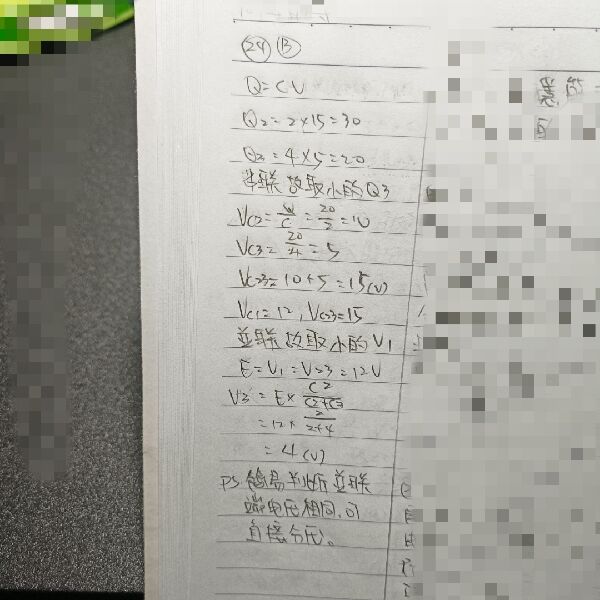 24 B
Q=CV
Q2=2×15=30
Q3=4×5=20
串联故取小的Q3
VC2=W/C=20/2=10
VC3=20/4=5
VC23=10+5=15(V)
VC1=12,VC23=15
並联故取小的V1
E=V1=V23=12V
V3=E×C2/(C2+C3)
=12×2/(2+4)
=4(V)
PS 简易判断並联
端电压相同,可
直接分压。